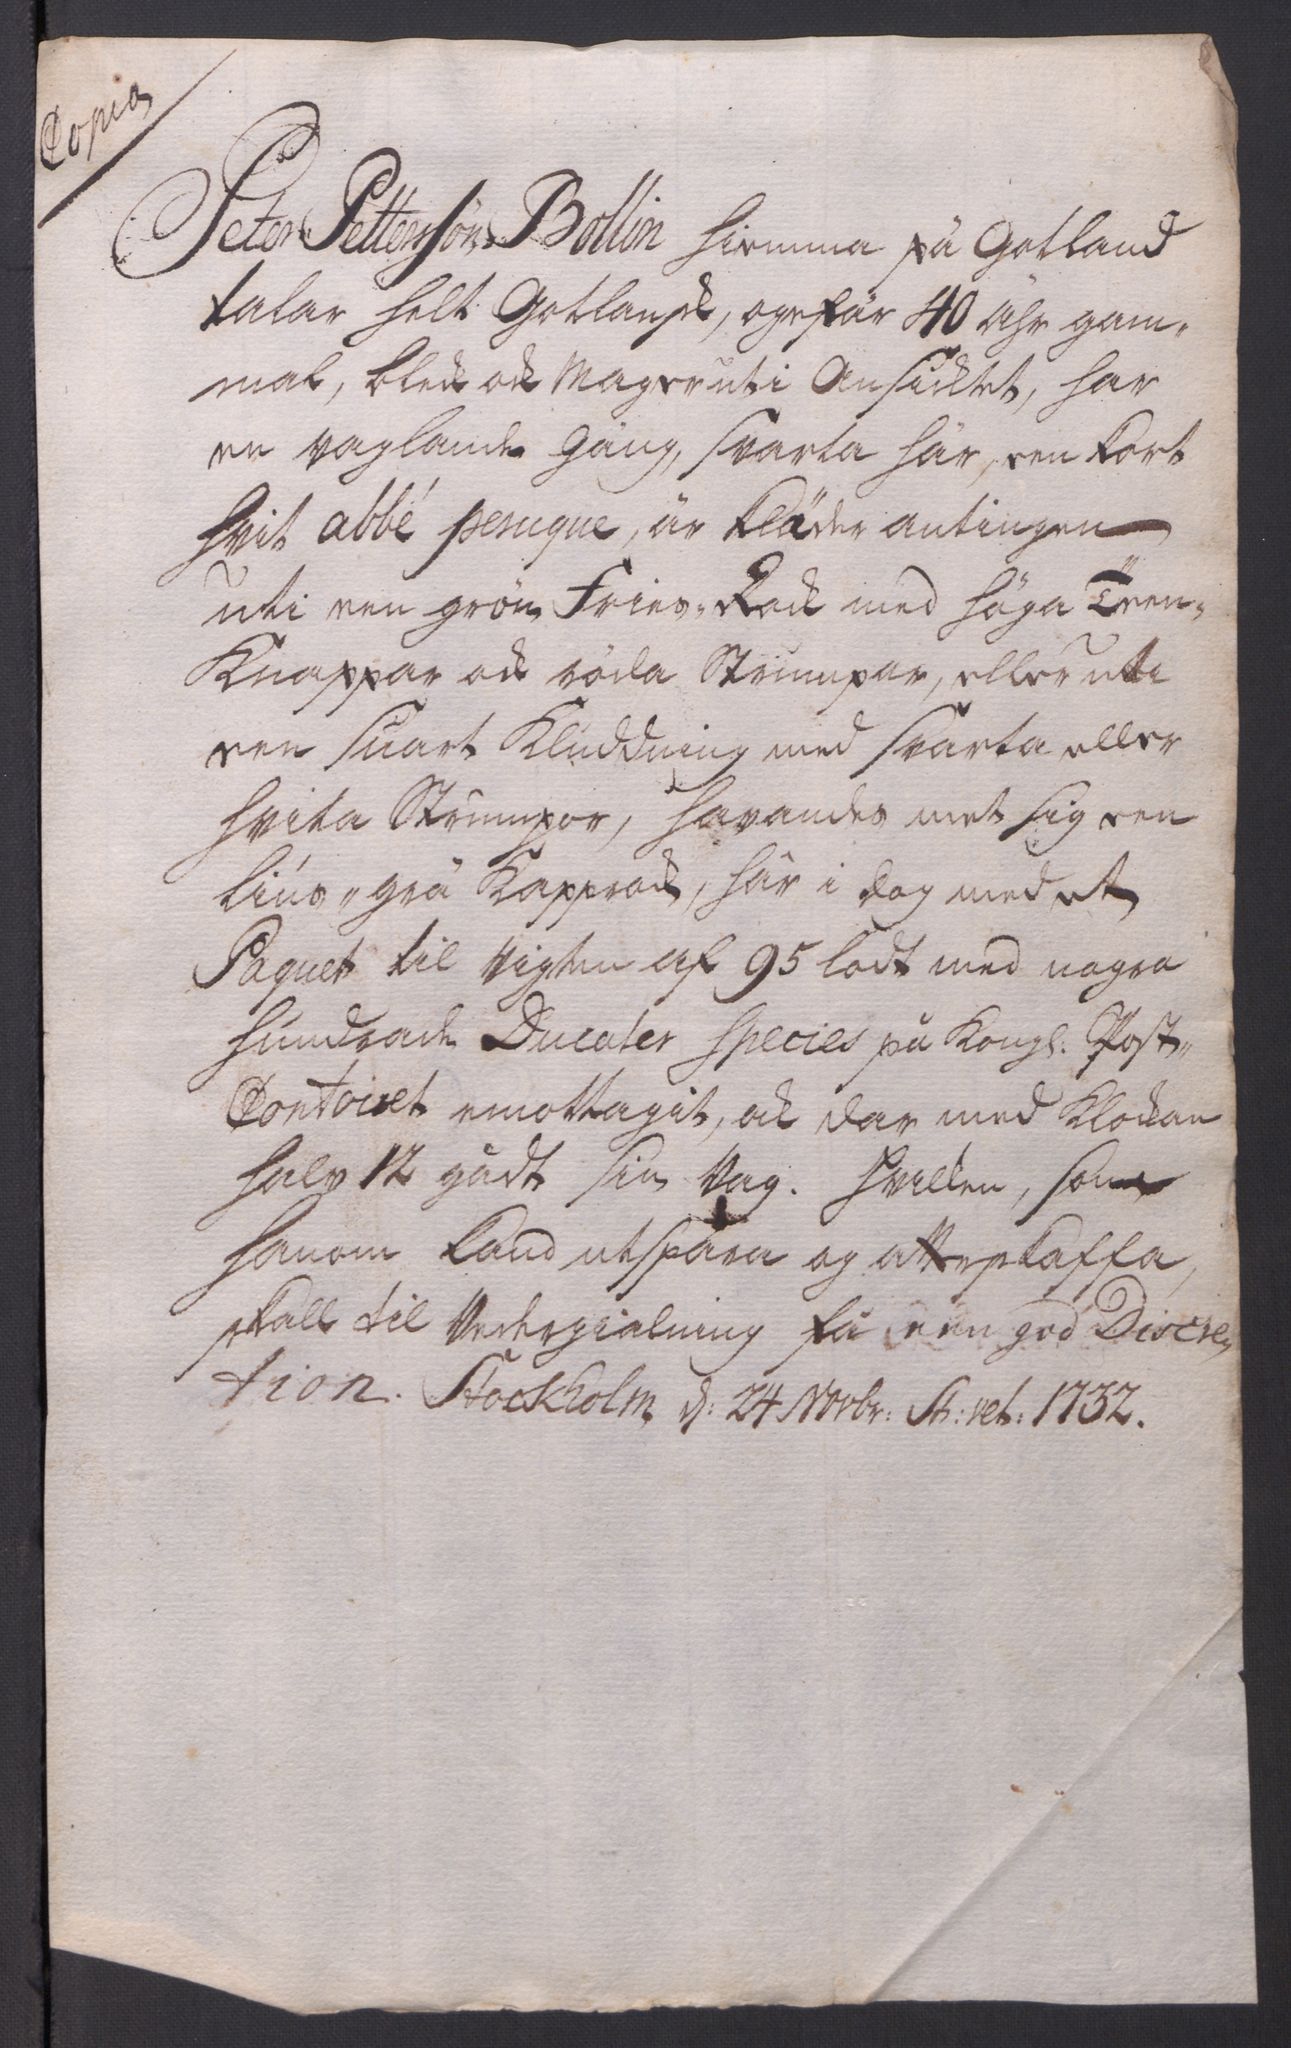 Copia
Peter Petterssön Bollin hiemma på Gotland
talar helt Gotlansk, ogefär 40 Åhr gam„
mal, blek ock Mager uti Ansicktet, har
en vaglande gång, svarta hår, een kort
hvit abbé peruque, är kläder antingen
uti een grön Fries„ Rock med höga Teen„
Knappar ock röda Strumpar, eller uti
een suart Klüddning med svarta eller
hvita Strumpor, havandes met sig een
lius„ grå Kapprock, hår i dag med et
Paquet til Vigten af 95 lodt med nogra
hundrade Ducater Species på Kongl: Post„
Contoiret emottagit, ock dar med Klockan
halv 12 gådt sin Vag. Hvilken, som
hanom kand utspåra og attrapkaffa,
skall til Vedergialning få een god Discre„
tion. Stockholm d: 24 Novbr: St: vet: 1732.